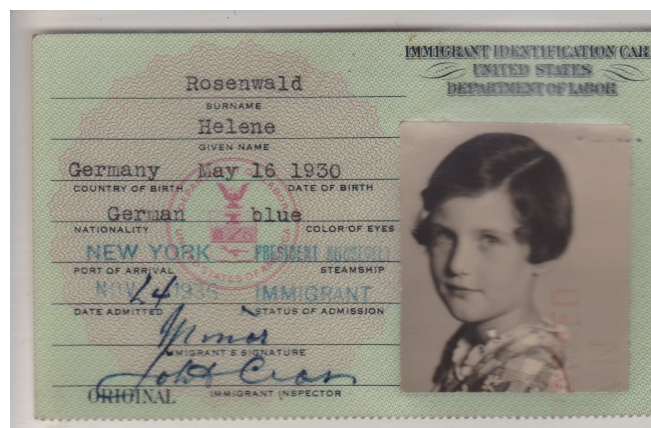 IMMIGRANT IDENTIFICATION CAR
UNITED STATES
DEPARTMENT OF LABOR
Rosenwald
SURNAME
Helene
GIVEN NAME
Germany May 16 1930
COUNTRY OF BIRTH DATE OF BIRTH
German blue
NATIONALITY COLOR OF EYES
NEW YORK PRESIDENT ROOSEVELT
PORT OF ARRIVAL STEAMSHIP
NOV 24 1936 IMMIGRANT
DATE ADMITTED STATUS OF ADMISSION
Minor
IMMIGRANT'S SIGNATURE
ORIGINAL IMMIGRANT INSPECTOR